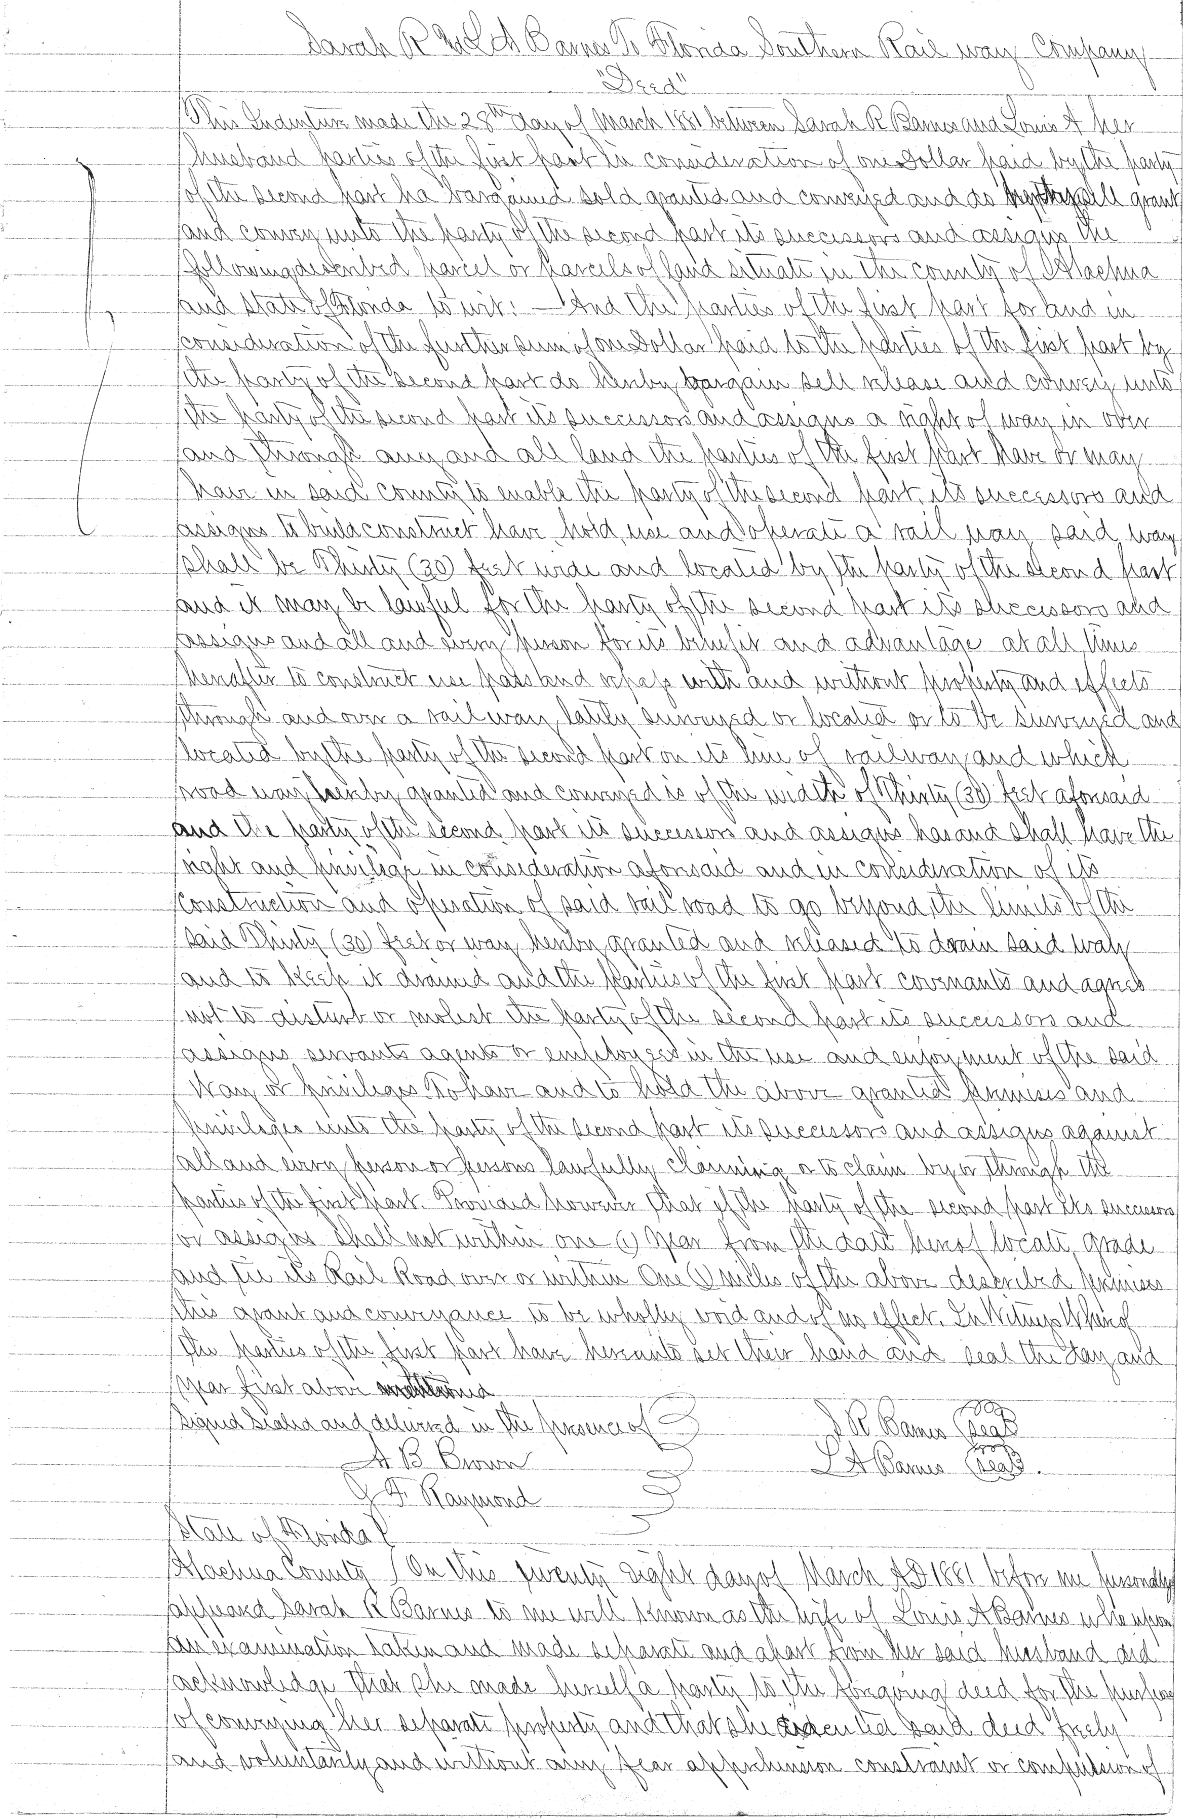 Sarah R & L A Barnes To Florida Southern Rail way Company
"Deed"
This Indenture made the 28th day of March 1881 between Sarah R Barnes and Louis A her
husband parties of the first part in consideration of one Dollar paid by the party
of the second part ha bargained sold granted and conveyed and do sell grant
and convey unto the party of the second part its successors and assigns the
following described parcel or parcels of land situate in the county of Alachua
and State of Florida to wit: — And the parties of the first part for and in
consideration of the further sum of one Dollar paid to the parties of the first part by
the party of the second part do hereby bargain sell release and convey unto
the party of the second part its successors and assigns a right of way in over
and through any and all land the parties of the first part have or may
have in said county to enable the party of the second part, its successors and
assigns to build construct have, hold, use and operate a rail way said way
shall be Thirty (30) feet wide and located by the party of the second part
and it may be lawful for the party of the second part its successors and
assigns and all and every person for its benefit and advantage at all times
hereafter to construct use pass and repass with and without property and effects
through and over a rail way lately surveyed or located or to be surveyed and
located by the party of the second part on its line of railway and which
road way hereby granted and conveyed is of the width of Thirty (30) feet aforesaid
and the party of the second part its successors and assigns has and shall have the
right and privilege in consideration aforesaid and in consideration of its
construction and operation of said rail road to go beyond the limits of the
said Thirty (30) feet or way hereby granted and released to drain said way
and to keep it drained and the parties of the first part covenants and agrees
not to disturb or molest the party of the second part its successors and
assigns servants agents or employees in the use and enjoyment of the said
Way or privileges To have and to hold the above granted premises and
privileges unto the party of the second part its successors and assigns against
all and every person or persons lawfully claiming or to claim by or through the
parties of the first part. Provided however that if the party of the second part its successors
or assigns shall not within one (1) year from the date hereof locate, grade
and tie its Rail Road over or within One (1) miles of the above described premises
this grant and conveyance to be wholly void and of no effect. In Witness Whereof
the parties of the first part have hereunto set their hand and seal the day and
year first above mentioned
Signed Sealed and delivered in the presence of S R Barnes Seal
A B Brown L A Barnes Seal.
G F Raymond
State of Florida
Alachua County On this twenty eight day of March AD 1881 before me personally
appeared Sarah R Barnes to me well known as the wife of Louis A Barnes who upon
an examination taken and made separate and apart from her said husband did
acknowledge that she made herself a party to the foregoing deed for the purpose
of conveying her separate property and that she executed said deed freely
and voluntarily and without any fear apprehension constraint or compulsion of